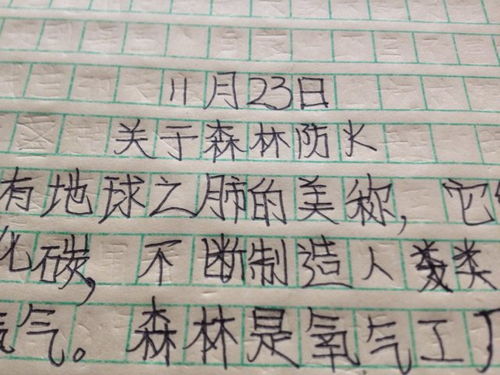 11月23日
关于森林防火
有地球之肺的美称,它
化碳,不断制造人类
气。森林是氧气工厂